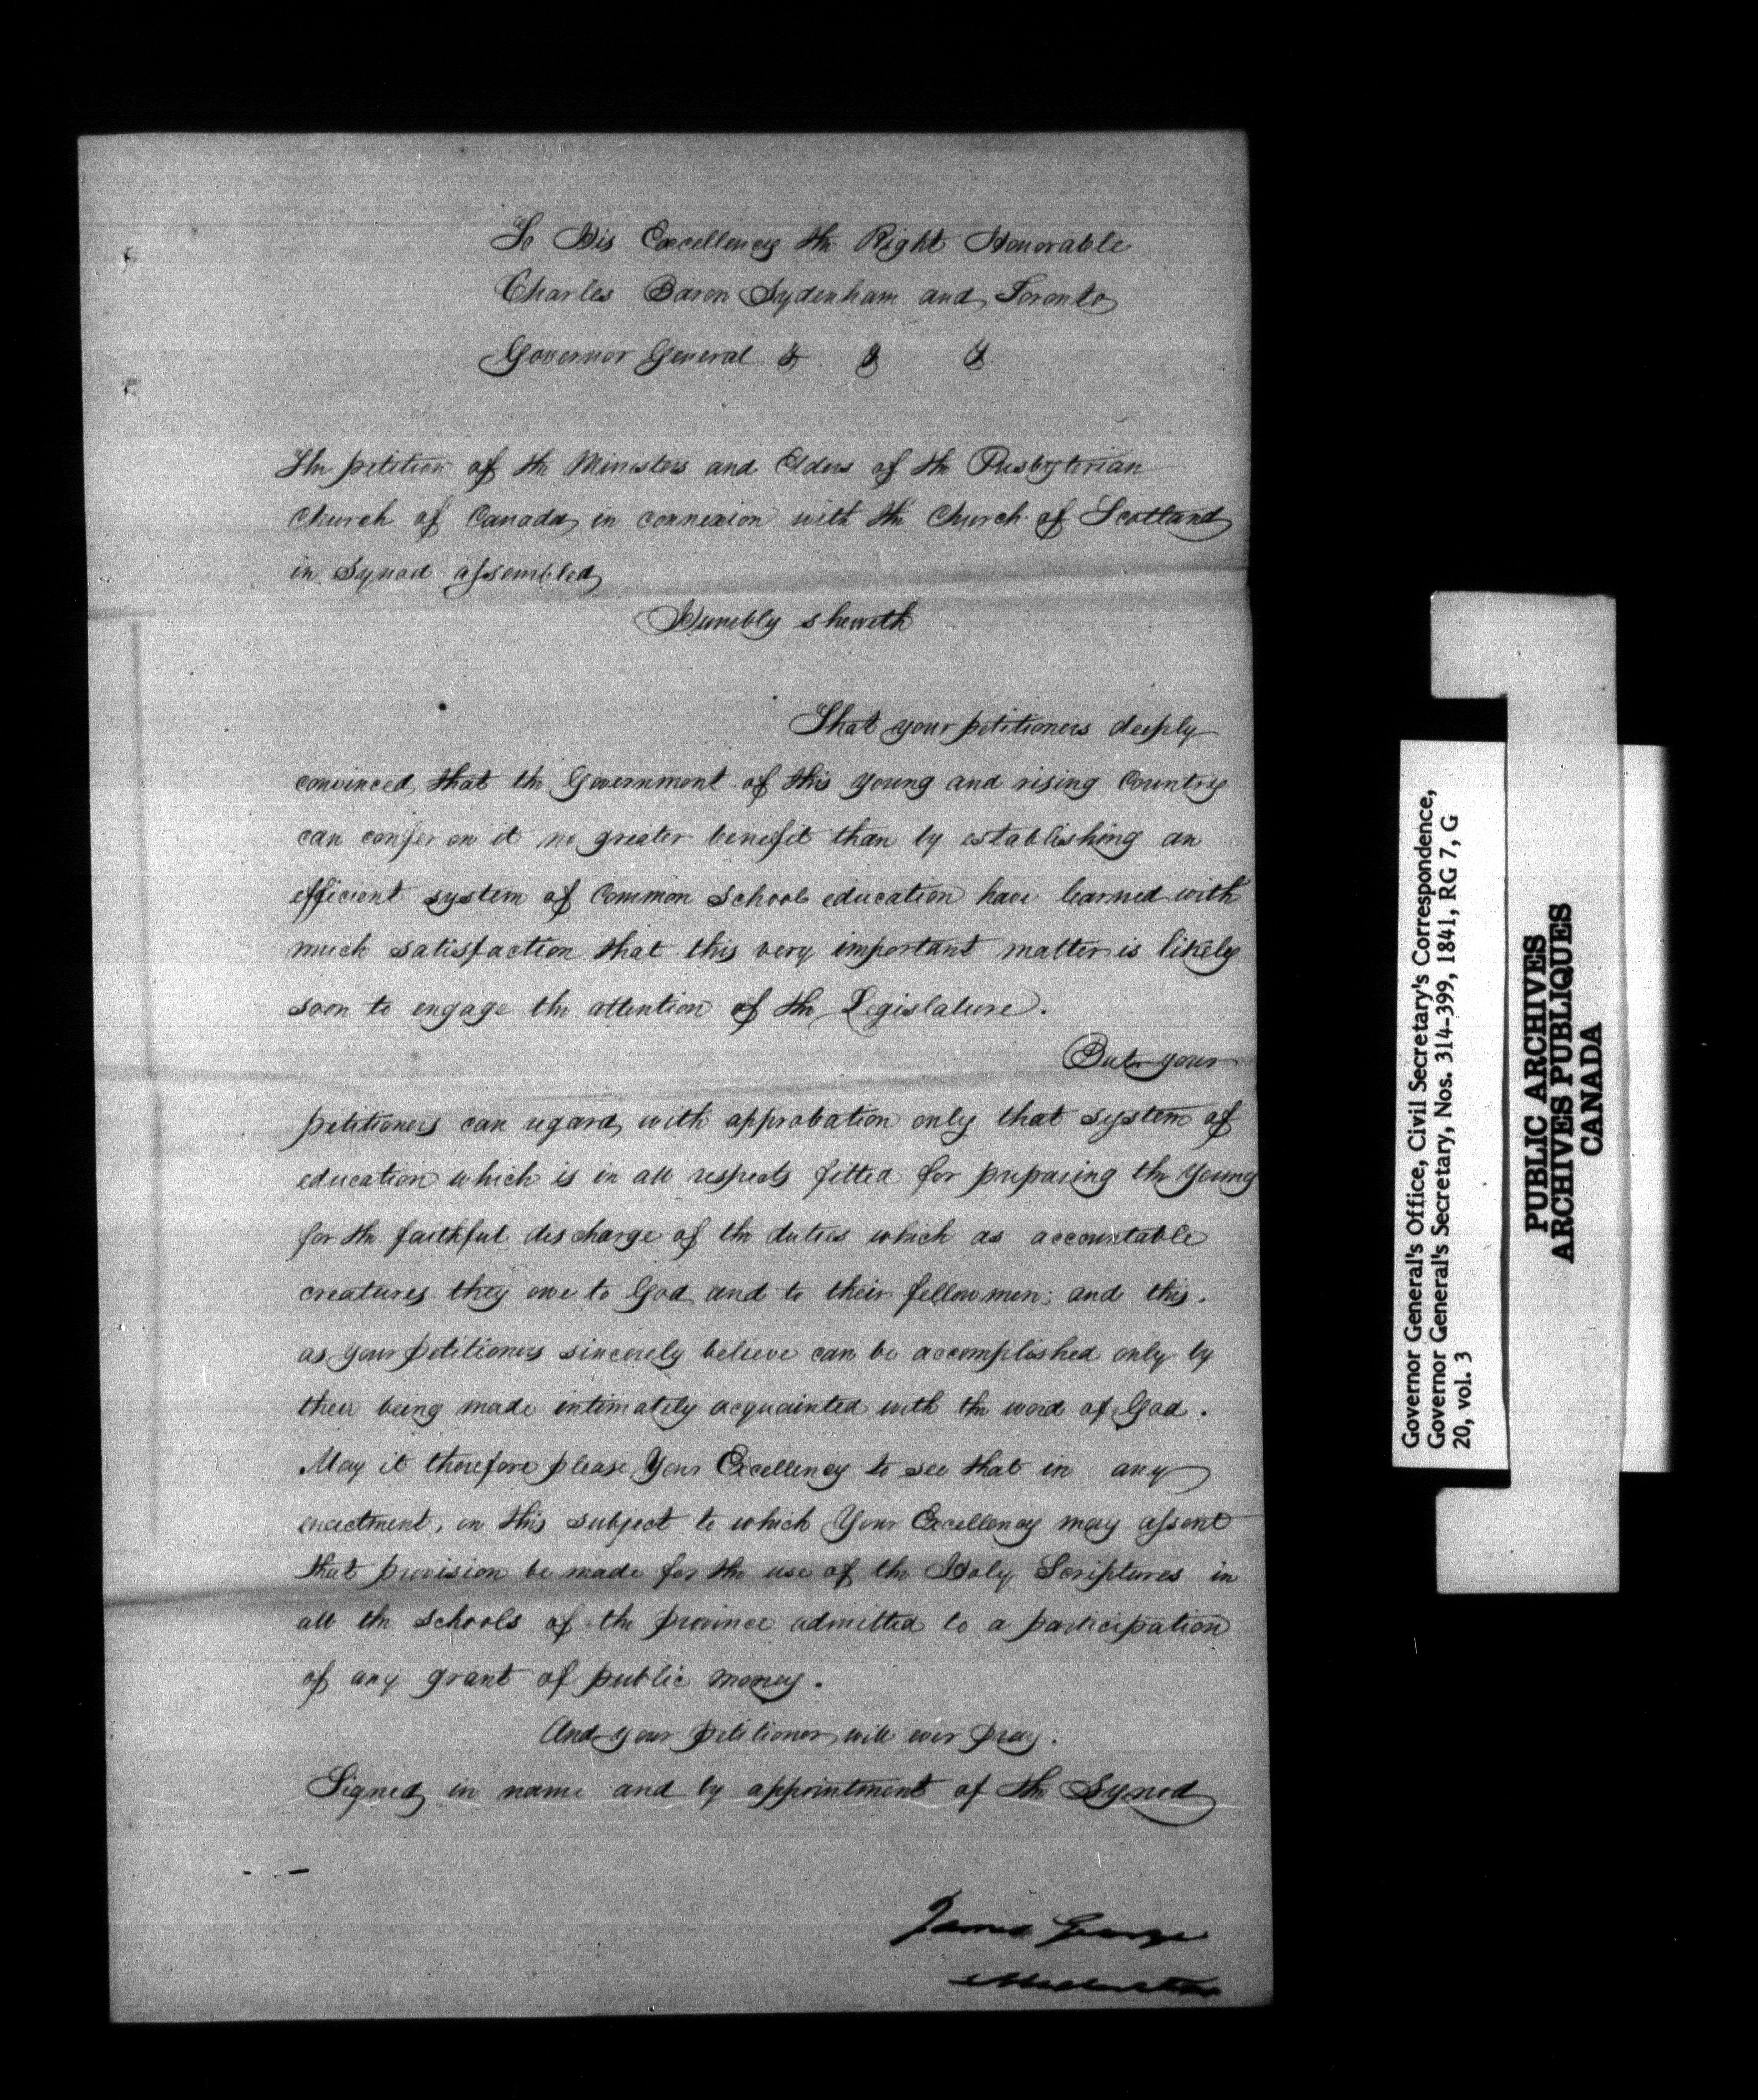 To His Excellency the Right Honorable
Charles Baron Sydenham and Toronto
Governor General & & &
The petition of the Ministers and Elders of the Presbyterian
Church of Canada in connexion with the Church of Scotland
in Synod assembled
Humbly sheweth
That your petitioners deeply
convinced that the Government of this young and rising Country
can confer on it no greater benefit than by establishing an
efficient system of Common School education have learned with
much satisfaction that this very important matter is likely
soon to engage the attention of the Legislature.
But your
petitioners can regard with approbation only that system of
education which is in all respects fitted for preparing the young
for the faithful discharge of the duties which as accountable
creatures they owe to God and to their fellow men; and this,
as your petitioners sincerely believe can be accomplished only by
their being made intimately acquainted with the word of God.
May it therefore please Your Excellency to see that in any
enactment, on this subject to which Your Excellency may assent
that provision be made for the use of the Holy Scriptures in
all the schools of the province admitted to a participation
of any grant of public money.
And your petitioners will ever pray.
Signed in name and by appointment of the Synod
James George
Moderator
Governor General's Office, Civil Secretary's Correspondence,
Governor General's Secretary, Nos. 314-399, 1841, RG 7, G
20, vol. 3
PUBLIC ARCHIVES
ARCHIVES PUBLIQUES
CANADA